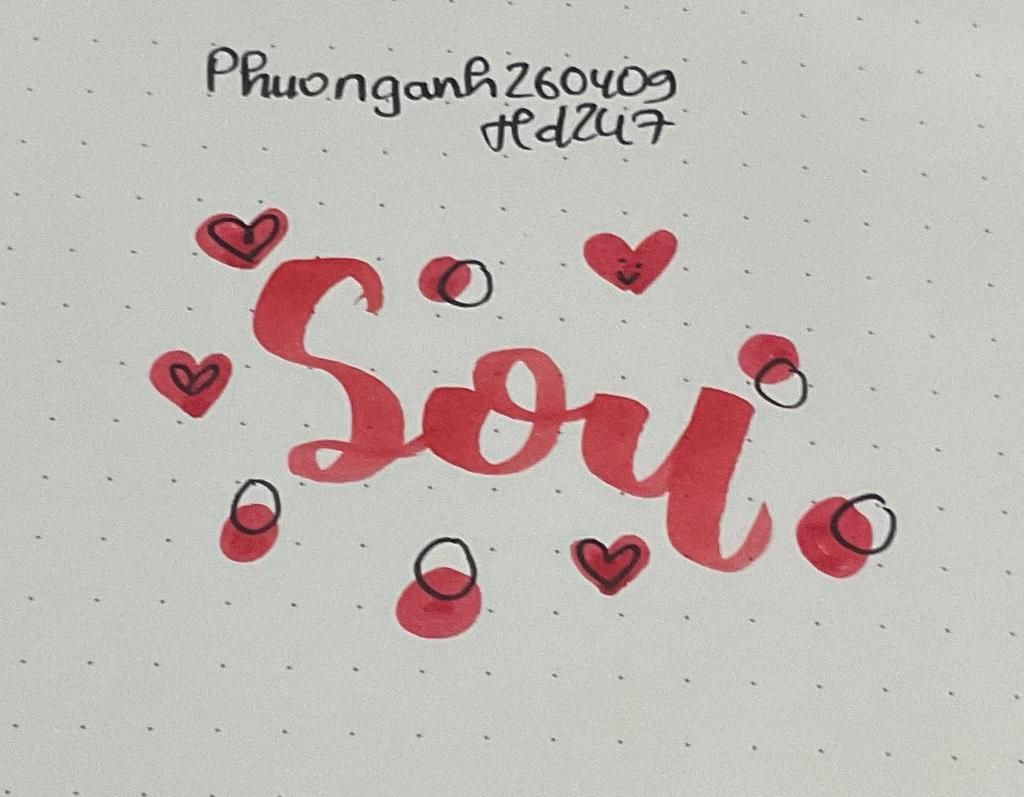 Phuonganh260409
Hd247
Sou